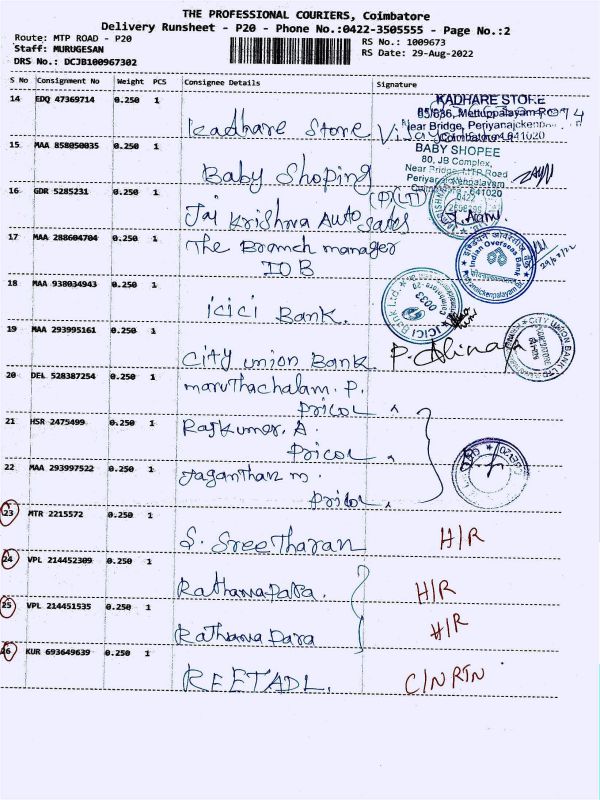 THE PROFESSIONAL COURIERS, Coimbatore
Delivery Runsheet - P20 - Phone No.:0422-3505555 - Page No.:2
Route: MTP ROAD - P20
Staff: MURUGESAN
DRS No.: DCJB100967302
RS No.: 1009673
RS Date: 29-Aug-2022
S No Consignment No Weight PCS Consignee Details Signature
14 EDQ 47369714 0.250 1
Kadhare Store
KADHARE STORE
85/636, Mettuppalayam
Near Bridge, Periyanajcken
Coimbatore 641020
15 MAA 858050035 0.250 1
Baby Shoping
BABY SHOPEE
80, JB Complex,
Near Bridge, MTP Road
Coimbatore - 641020
16 GDR 5285231 0.250 1
(P) LT)
Jai Krishna Auto Sales
17 MAA 288604704 0.250 1
The Branch manager
IOB
Indian Overseas Bank
18 MAA 938034943 0.250 1
icici Bank.
ICICI Bank Ltd.
0033
19 MAA 293995161 0.250 1
City union Bank
CITY UNION BANK LTD
20 DEL 528387254 0.250 1
maruthachalam. P.
Pricol
21 HSR 2475499 0.250 1
Rajkumar. A.
Pricol
22 MAA 293997522 0.250 1
Jaganthan m.
Pricol
23 MTR 2215572 0.250 1
S. Sreetharan H/R
24 VPL 214452309 0.250 1
Rathanapara. H/R
25 VPL 214451535 0.250 1
Rathanapara H/R
26 KUR 693649639 0.250 1
REETADL. C/N RTN